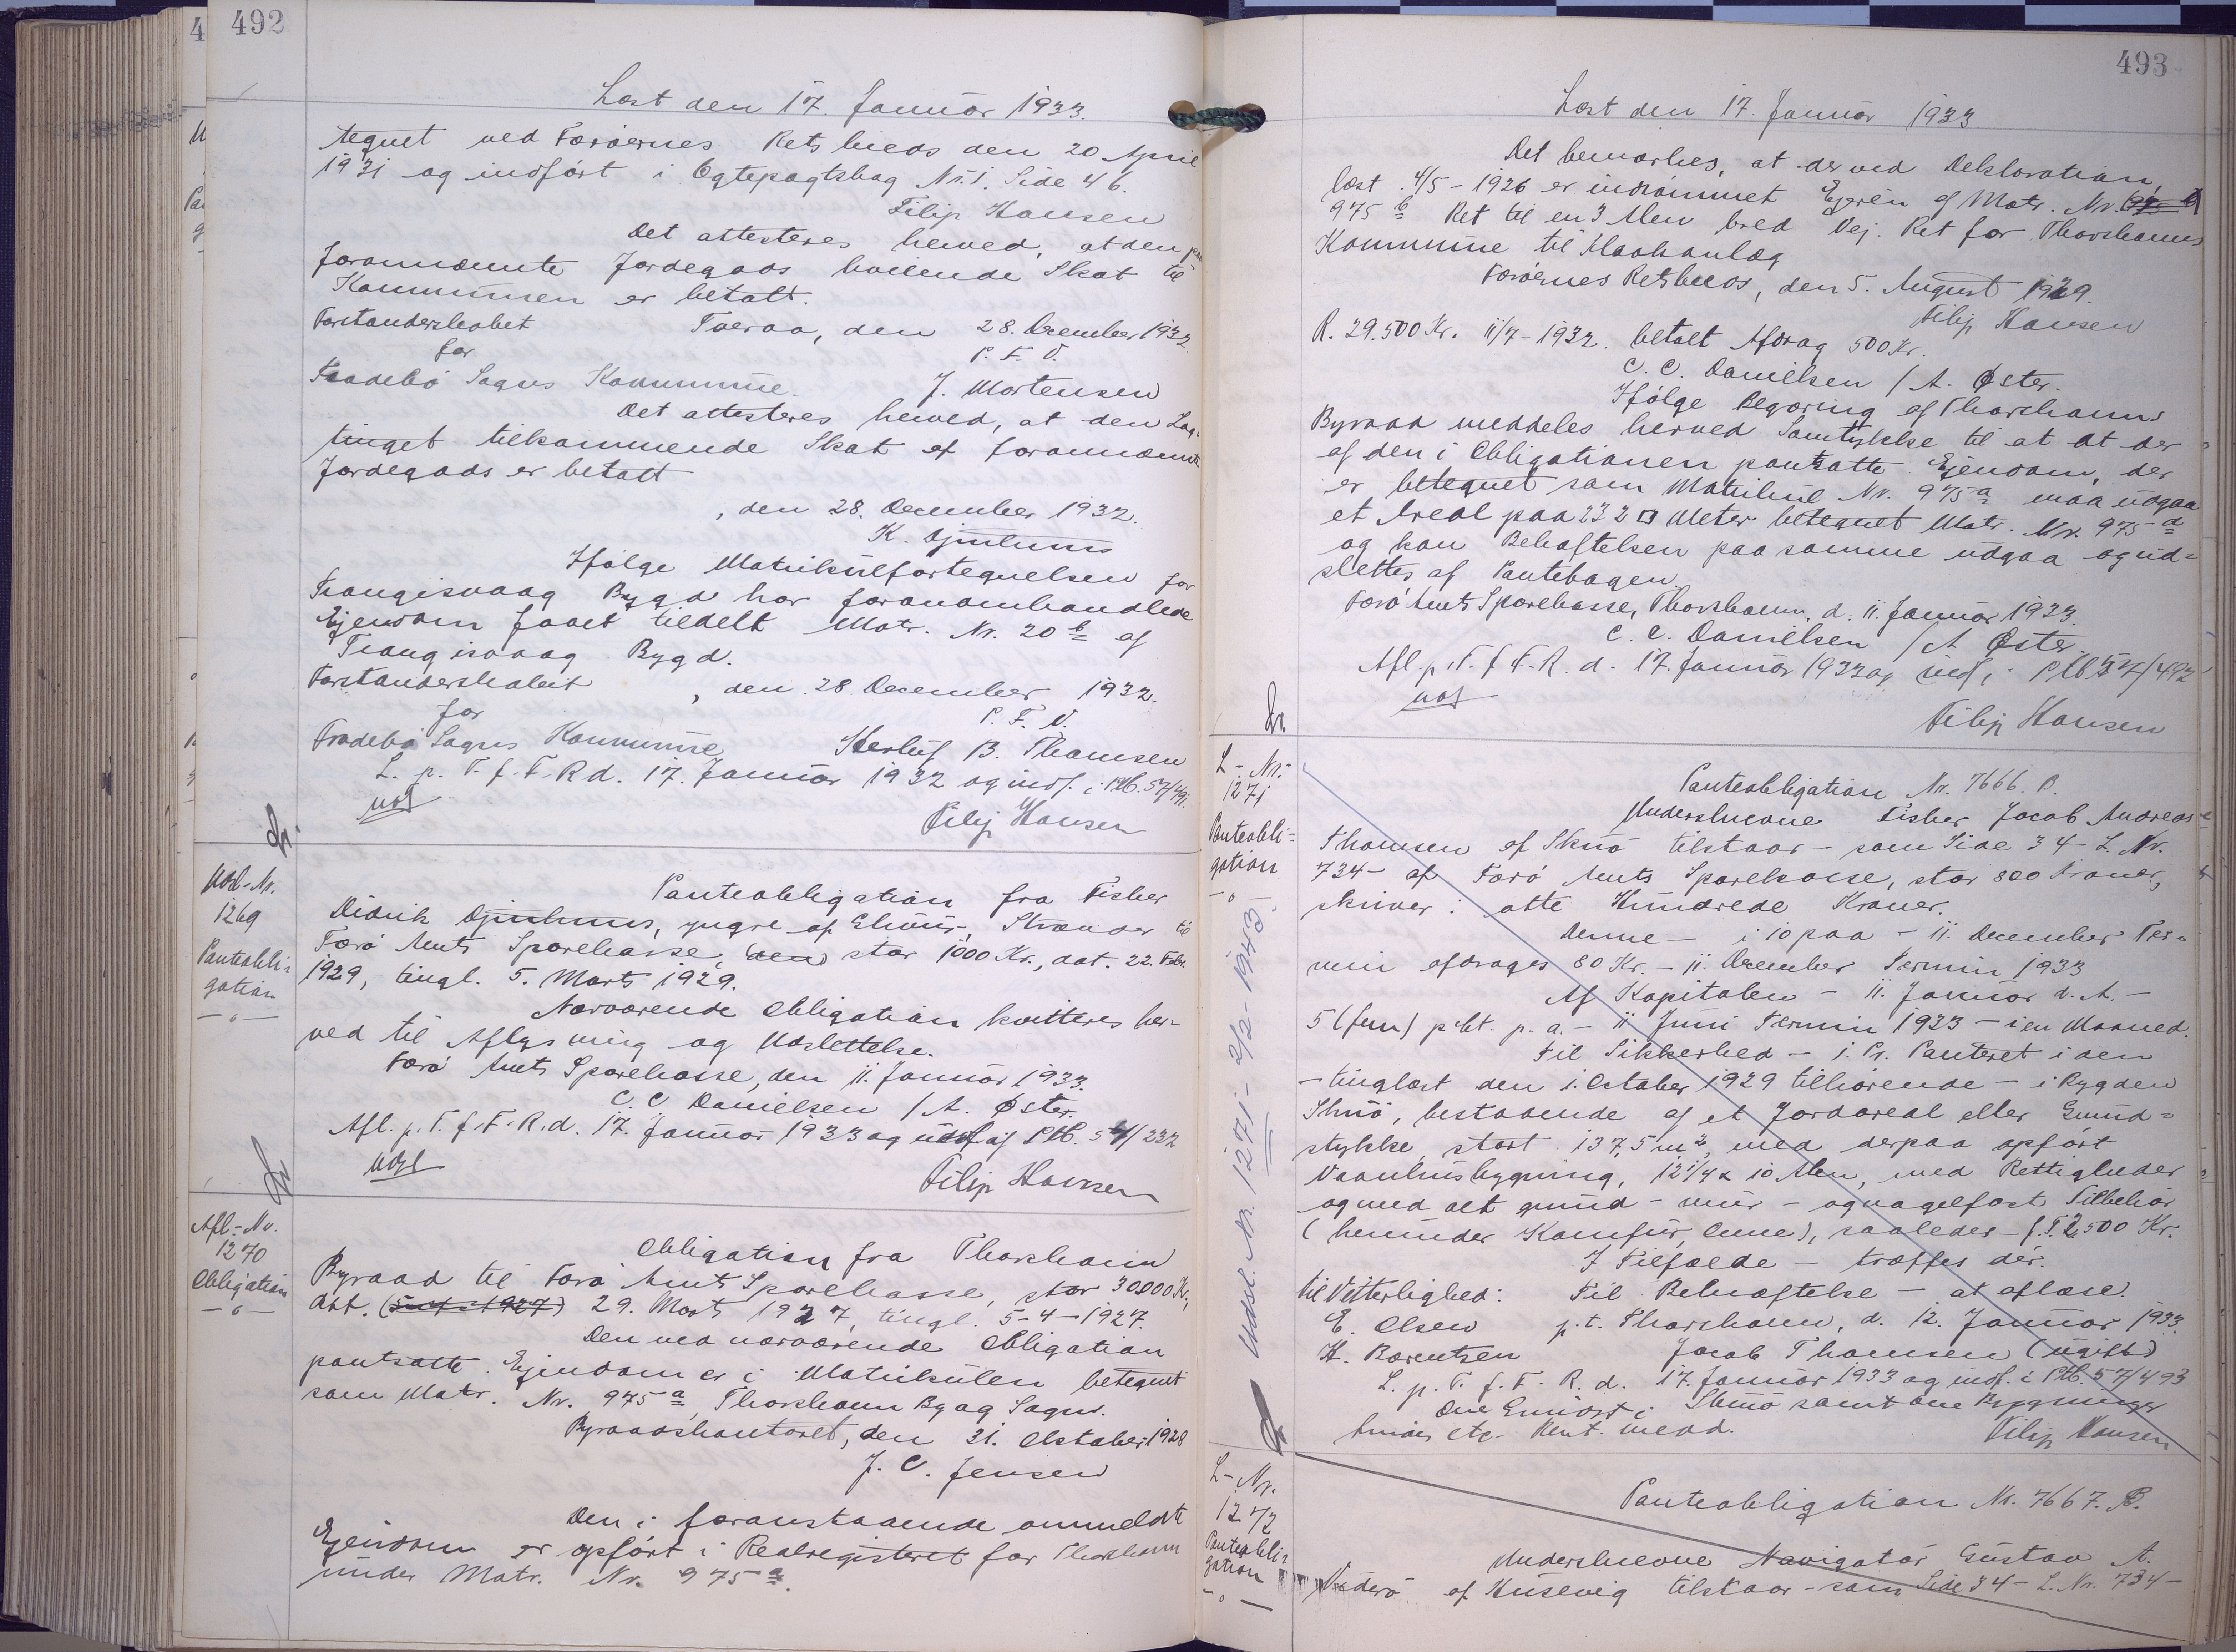 492
Læst den 17. Januar 1933.
tegnet ved Færøernes Retskreds den 20 April
1931 og indført i Ægtepagtsbog Nr. 1. Side 46.
Filip Hansen
Det attesteres herved, at den paa
forannævnte Jordegods hvilende Skat til
Kommunen er betalt.
Forstanderskabet Tveraa, den 28. December 1932.
for P. F. V.
Frodebø Sogns Kommune. J. Mortensen
Det attesteres herved, at den Lag-
tinget tilkommende Skat af forannævnte
Jordegods er betalt
, den 28. December 1932.
K. Djurhuus
Ifølge Matrikulfortegnelsen for
Trangisvaag Bygd har foranomhandlede
Ejendom faaet tildelt Matr. Nr. 20 b af
Trangisvaag Bygd.
Forstanderskabet , den 28. December 1932.
for P. F. V.
Frodebø Sogns Kommune Herluf B. Thomsen
L. p. T. f. F. R d. 17. Januar 1932 og indf. i Ptb. 57/491.
Filip Hansen
Udsl-Nr.
1269
Panteobli-
gation
— " —
Panteobligation fra Fisker
Didrik Djurhuus, yngre af Eliduus, Strænder til
Færø Amts Sparekasse, (den) stor 1000 Kr., dat. 22. Febr.
1929, tingl. 5. Marts 1929.
Nærværende Obligation kvitteres her-
ved til Aflysning og Udslettelse.
Færø Amts Sparekasse, den 11. Januar 1933.
C. C Danielsen / A. Øster.
Afl. p. T. f. F. R. d. 17. Januar 1933 og udsl af Ptb. 54/232
Udsl
Filip Hansen
Afl.-Nr.
1270
Obligation
— " —
Obligation fra Thorshavn
Byraad til Færø Amts Sparekasse, stor 30000 Kr.,
dat. (5-4-1927) 29. Marts 1927, tingl. 5-4-1927.
Den ved nærværende Obligation
pantsatte Ejendom er i Matrikulen betegnet
som Matr. Nr. 975 a, Thorshavn By og Sogn.
Byraadskontoret, den 31. Oktober 1928
J. C. Jensen
Den i foranstaaende anmeldte
Ejendom er opført i Realregisteret for Thorshavn
under Matr. Nr. 975 a.
493
Læst den 17. Januar 1933
Det bemærkes, at der ved Deklaration,
læst 4/5-1926 er indrømmet Ejeren af Matr. Nr.
975 b Ret til en 3 Alen bred Vej. Ret for Thorshavns
Kommune til Kloakanlæg
Færøernes Retskreds, den 5. August 1929.
Filip Hansen
R. 29.500 Kr. 11/7-1932. betalt Afdrag 500 Kr.
C. C. Danielsen / A. Øster.
Ifølge Begæring af Thorshavns
Byraad meddeles herved Samtykke til at at der
af den i Obligationen pantsatte Ejendom, der
er betegnet som Matrikul Nr. 975 a maa udgaa
et Areal paa 232 □ Meter betegnet Matr. Nr. 975 d
og kan Behæftelsen paa samme udgaa og ud-
slettes af Pantebogen.
Færø Amts Sparekasse, Thorshavn, d. 11. Januar 1933.
C. C. Danielsen / A Øster.
Afl. p. T. f. F. R. d. 17. Januar 1933 og indf. i Ptb 57/492
Filip Hansen
L-Nr.
1271
Panteobli-
gation
— " —
Udsl. Nr. 1271 - 2/2-1943.
Panteobligation Nr. 7666. P.
Underskrevne Fisker Jacob Andreas
Thomsen af Skuø tilstaar - som Side 34 - L. Nr.
734 - af Færø Amts Sparekasse, stor 800 Kroner,
skriver: otte Hundrede Kroner.
Denne - i 10 paa - 11. December Ter-
min afdrages 80 Kr. - 11. December Termin 1933
Af Kapitalen - 11. Januar d. A. -
5 (fem) pCt. p. a. - 11 Juni Termin 1933 - i en Maaned.
Til Sikkerhed - 1. Pr. Panteret i den
- tinglæst den 1. Oktober 1929 tilhørende - i Bygden
Skuø, bestaaende af et Jordareal eller Grund-
stykke stort 137,5 m², med derpaa opført
Vaaanhusbygning, 12 1/4 x 10 Alen, med Rettigheder
og med alt grund - mur - og nagelfast Tilbehør
(herunder Komfur, Ovne), saaledes - f. T. 2.500 Kr.
I Tilfælde - træffes dér.
Til Vitterlighed: Til Bekræftelse - at aflæse.
E. Olsen p. t. Thorshavn, d. 12. Januar 1933.
H. Berentsen Jacob Thomsen (ugift)
L. p. T. f. F. R. d. 17. Januar 1933 og indf. i Ptb. 57/493
Skuø samt Bygninger
Filip Hansen
L-Nr.
1272
Panteobli-
gation
— " —
Panteobligation Nr. 7667. B.
Underskrevne Navigatør Gustav A.
Viderø af Husevig tilstaar - som Side 34 - L. Nr. 734 -